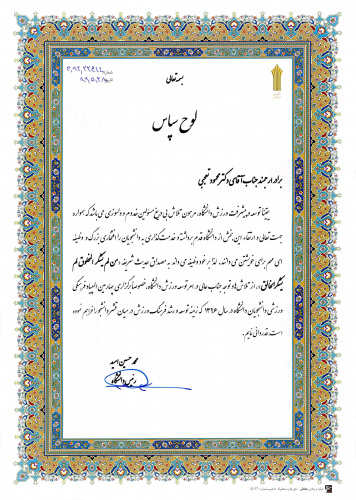 بسمه‌تعالی
لوح سپاس
برادر ارجمند جناب آقای دکتر محمود نجمی
یقیناً توسعه و پیشرفت ورزش دانشگاه، مرهون تلاش بی دریغ مسئولین خدوم و دلسوزی می‌باشد که همواره
جهت تعالی و ارتقاء این بخش از دانشگاه قدم برداشته و خدمت‌گذاری به دانشجویان را افتخاری بزرگ و وظیفه
ای مهم برای خویشتن می‌دانند. لذا بر خود وظیفه می‌داند به مصداق حدیث شریفه «من لم یشکر المخلوق لم
یشکر الخالق» از تلاش‌ها و توجه جناب عالی در امر توسعه ورزش دانشگاه، خصوصاً برگزاری چهارمین المپیاد فرهنگی
ورزش دانشجویان دانشگاه در سال ۱۳۸۶ که زمینه توسعه و رشد فرهنگ ورزش در میان قشر دانشجو را فراهم نموده
است قدردانی نمایم.
محمد حسین امید
رئیس دانشگاه